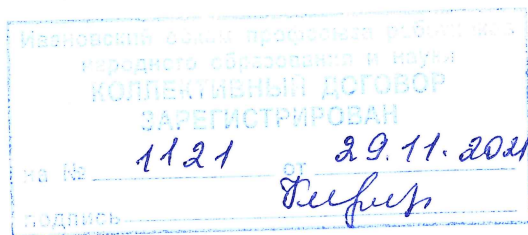 Ивановский обком профсоюза работников
народного образования и науки
КОЛЛЕКТИВНЫЙ ДОГОВОР
ЗАРЕГИСТРИРОВАН
на № 1121 от 29.11.2021
подпись